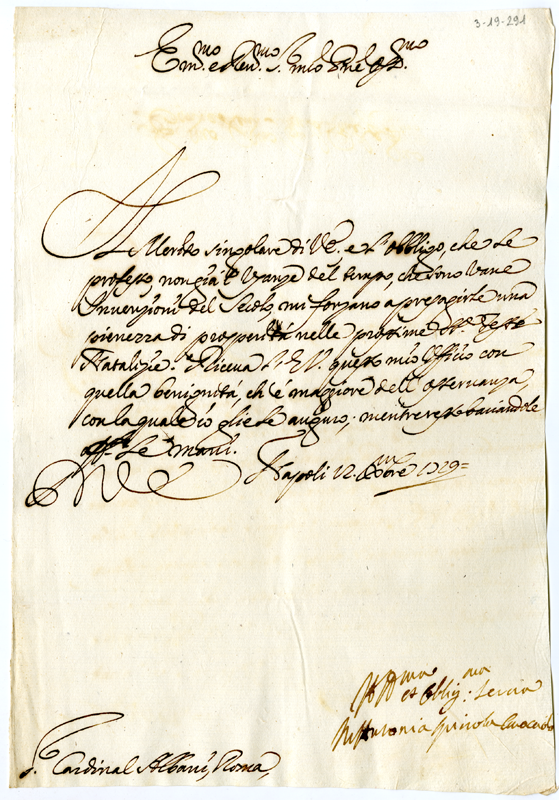 3-19-291
Em.mo e Rev.mo S.
Il Merito singolare di V.E. e l'obbligo, che Le
professo, non già l'Usanze del tempo, che sono vane
Invenzioni del Secolo, mi forzano a presagirle una
pienezza di prosperità nelle prossime S.te Feste
Natalizie. Riceva l'E.V. questo mio Officio con
quella benignità, ch'è maggiore dell'osservanza,
con la quale io gliele auguro; mentre resto baciandole
aff.te le mani.
Napoli 12. Xmbre 1729=
V.E.
et Obblig. Serva
Antonia Spinola
S. Cardinal Albani, Roma,